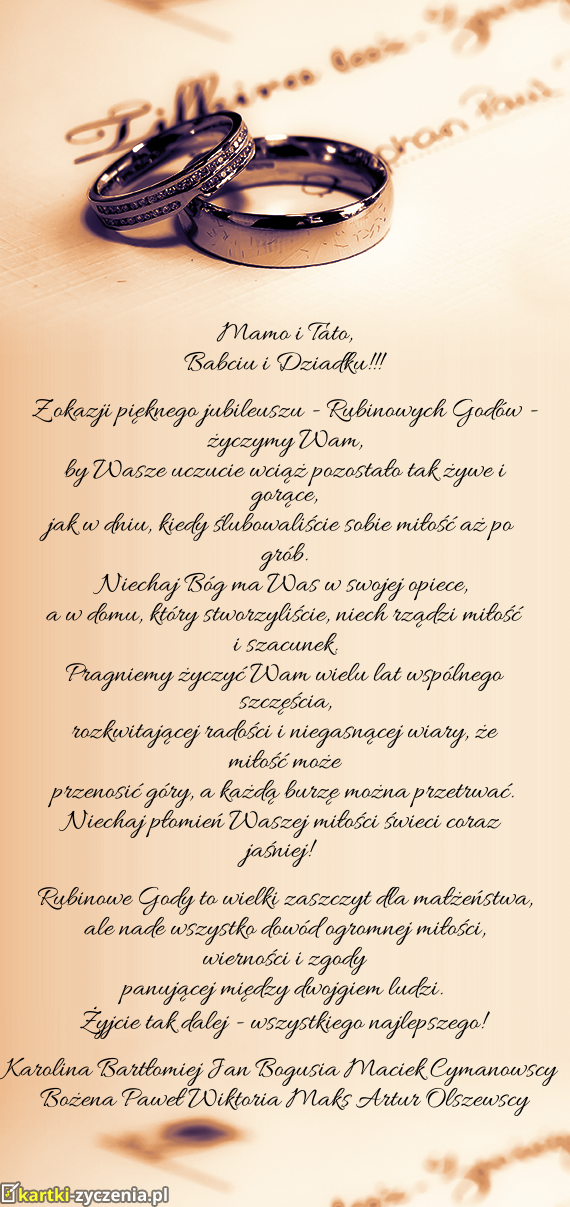 Mamo i Tato,
Babciu i Dziadku!!!
Z okazji pięknego jubileuszu - Rubinowych Godów -
życzymy Wam,
by Wasze uczucie wciąż pozostało tak żywe i
gorące,
jak w dniu, kiedy ślubowaliście sobie miłość aż po
grób.
Niechaj Bóg ma Was w swojej opiece,
a w domu, który stworzyliście, niech rządzi miłość
i szacunek.
Pragniemy życzyć Wam wielu lat wspólnego
szczęścia,
rozkwitającej radości i niegasnącej wiary, że
miłość może
przenosić góry, a każdą burzę można przetrwać.
Niechaj płomień Waszej miłości świeci coraz
jaśniej!
Rubinowe Gody to wielki zaszczyt dla małżeństwa,
ale nade wszystko dowód ogromnej miłości,
wierności i zgody
panującej między dwojgiem ludzi.
Żyjcie tak dalej - wszystkiego najlepszego!
Karolina Bartłomiej Jan Bogusia Maciek Cymanowscy
Bożena Paweł Wiktoria Maks Artur Olszewscy
kartki-zyczenia.pl